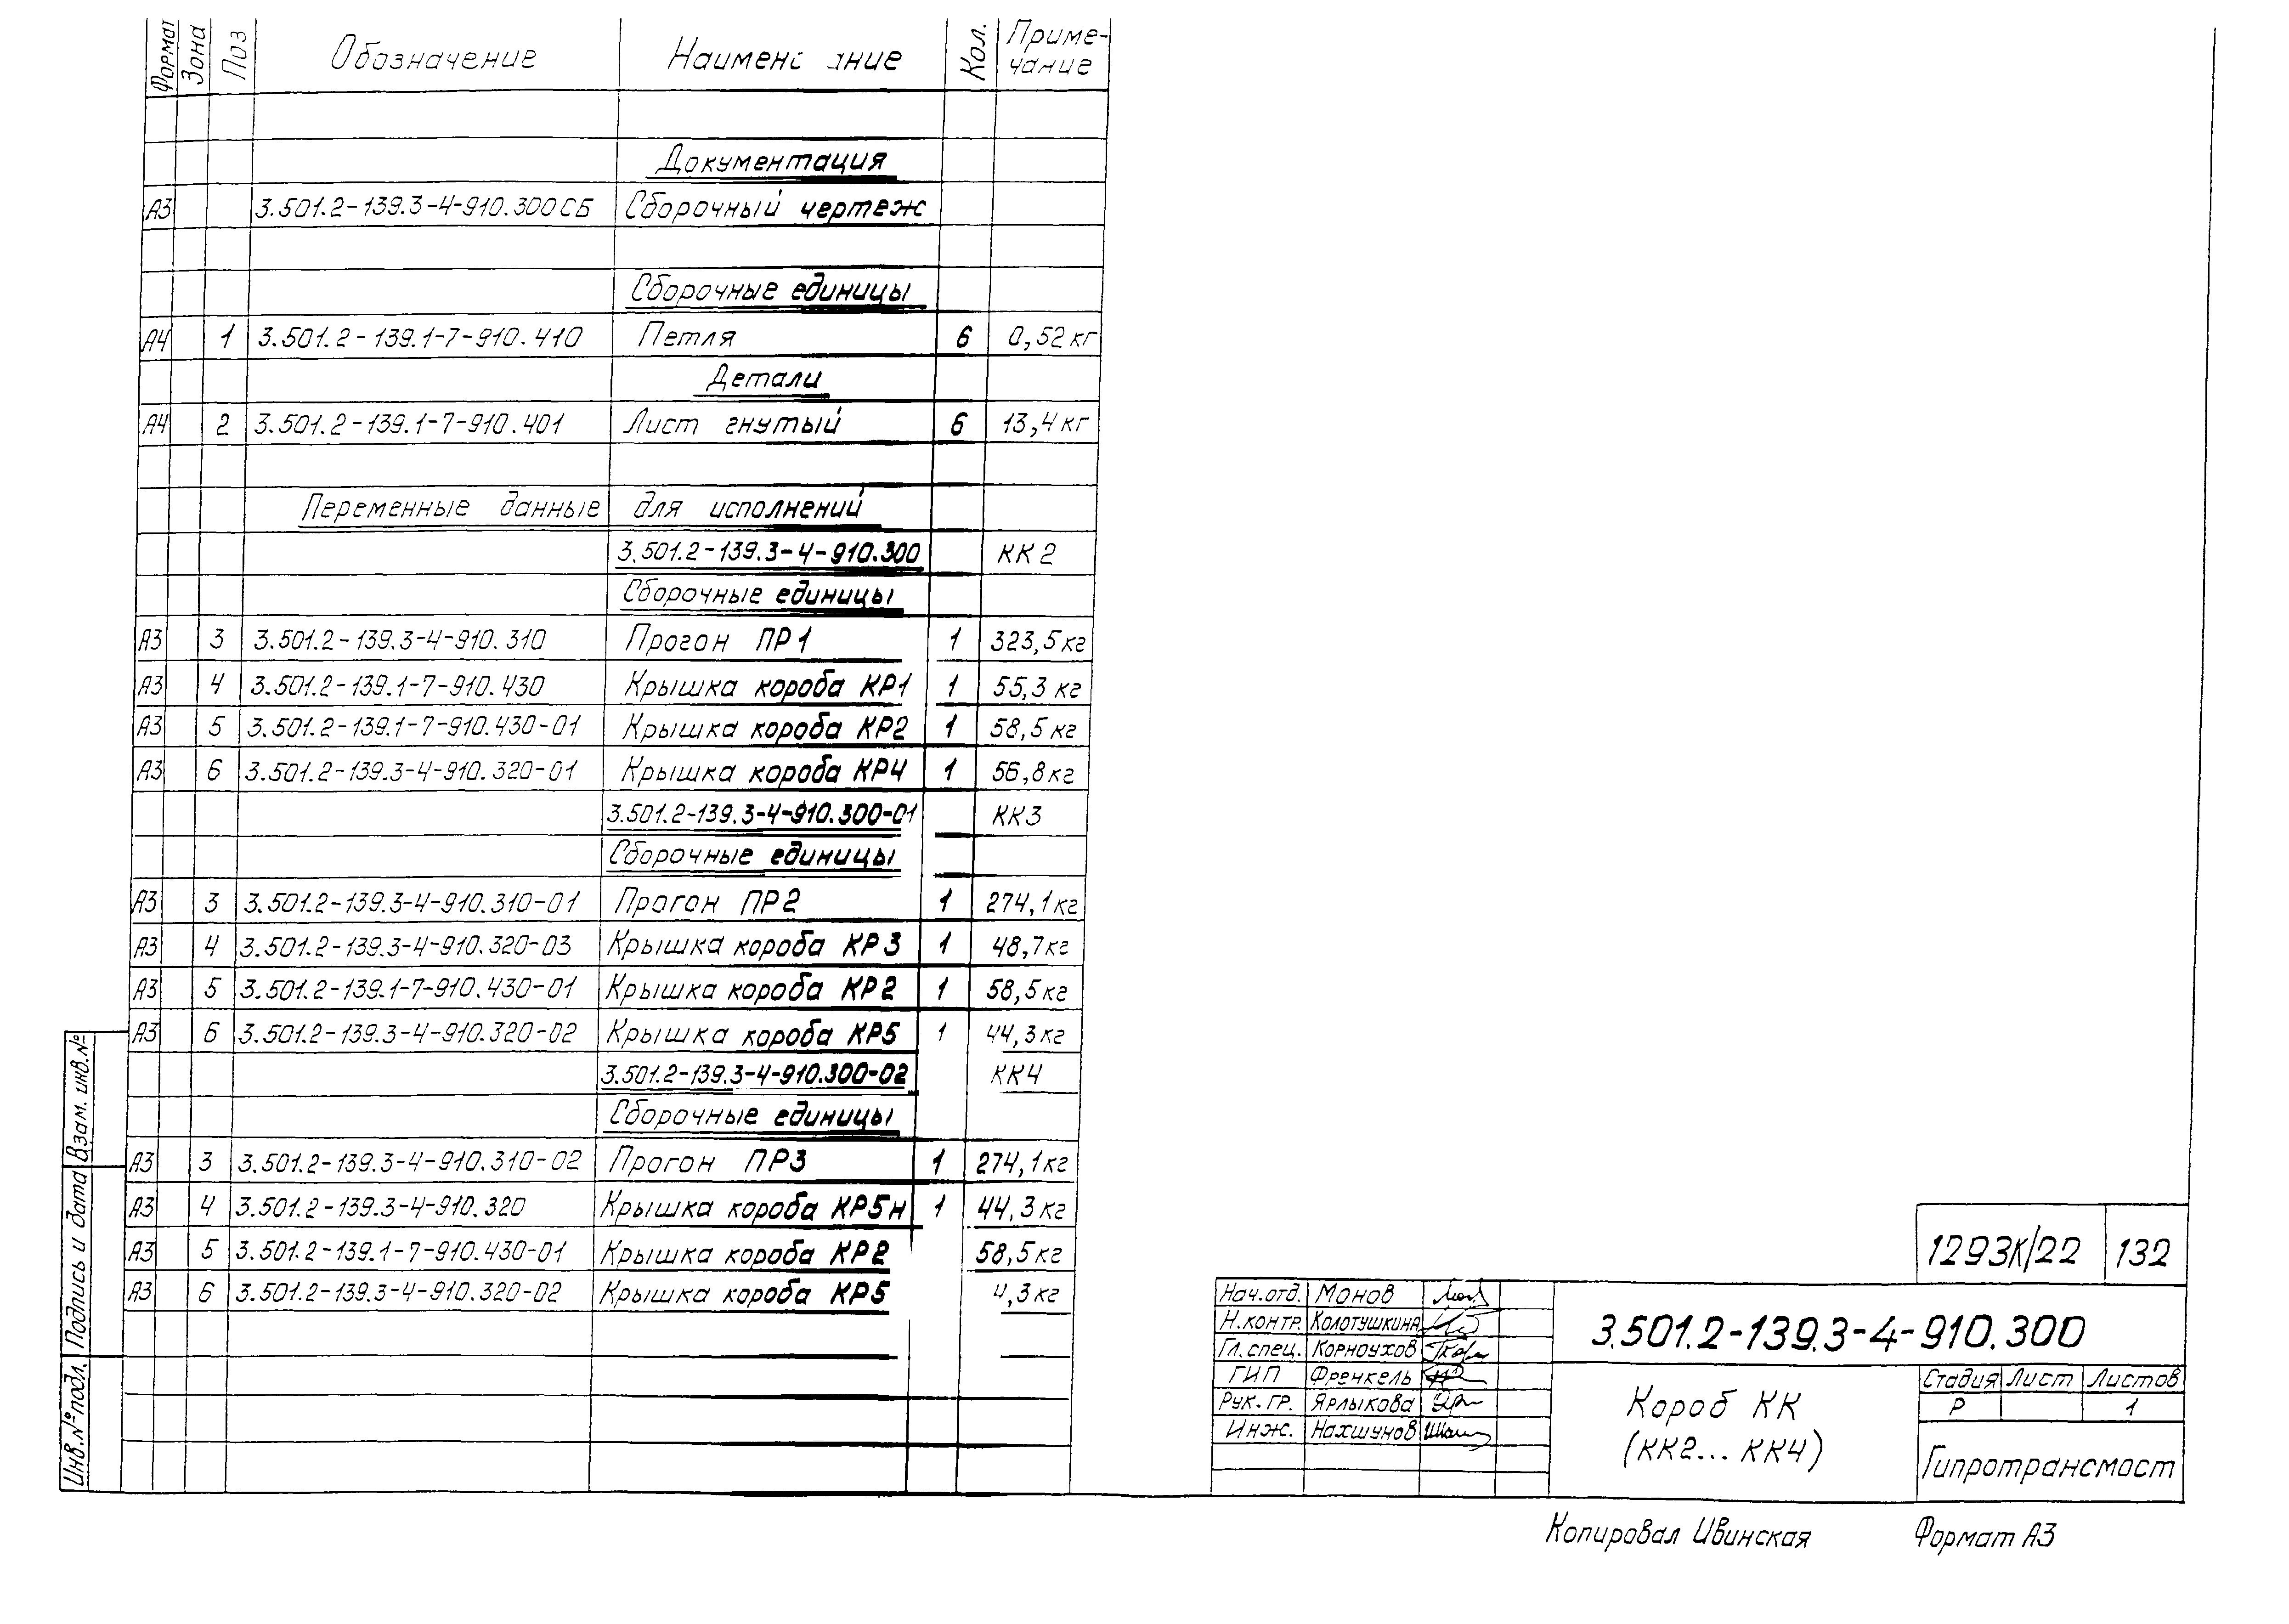 Формат Зона Поз Обозначение Наимен ание Кол. Приме-чание
Документация
А3 3.501.2-139.3-4-910.300СБ Сборочный чертеж
Сборочные единицы
А4 1 3.501.2-139.1-7-910.410 Петля 6 0,52 кг
Детали
А4 2 3.501.2-139.1-7-910.401 Лист гнутый 6 13,4 кг
Переменные данные для исполнений
3.501.2-139.3-4-910.300 КК2
Сборочные единицы
А3 3 3.501.2-139.3-4-910.310 Прогон ПР1 1 323,5 кг
А3 4 3.501.2-139.1-7-910.430 Крышка короба КР1 1 55,3 кг
А3 5 3.501.2-139.1-7-910.430-01 Крышка короба КР2 1 58,5 кг
А3 6 3.501.2-139.3-4-910.320-01 Крышка короба КР4 1 56,8 кг
3.501.2-139.3-4-910.300-01 КК3
Сборочные единицы
А3 3 3.501.2-139.3-4-910.310-01 Прогон ПР2 1 274,1 кг
А3 4 3.501.2-139.3-4-910.320-03 Крышка короба КР3 1 48,7 кг
А3 5 3.501.2-139.1-7-910.430-01 Крышка короба КР2 1 58,5 кг
А3 6 3.501.2-139.3-4-910.320-02 Крышка короба КР5 1 44,3 кг
3.501.2-139.3-4-910.300-02 КК4
Сборочные единицы
А3 3 3.501.2-139.3-4-910.310-02 Прогон ПР3 1 274,1 кг
А3 4 3.501.2-139.3-4-910.320 Крышка короба КР5н 1 44,3 кг
А3 5 3.501.2-139.1-7-910.430-01 Крышка короба КР2 58,5 кг
А3 6 3.501.2-139.3-4-910.320-02 Крышка короба КР5 4,3 кг
Взам. инв.№
Подпись и дата
Инв.№подл.
1293К/22 132
Нач.отд. Монов
Н.контр. Колотушкина
Гл.спец. Корноухов
ГИП Френкель
Рук.гр. Ярлыкова
Инж. Нахшунов
3.501.2-139.3-4-910.300
Короб КК
(КК2... КК4)
Стадия Лист Листов
Р 1
Гипротрансмост
Копировал Ивинская Формат А3